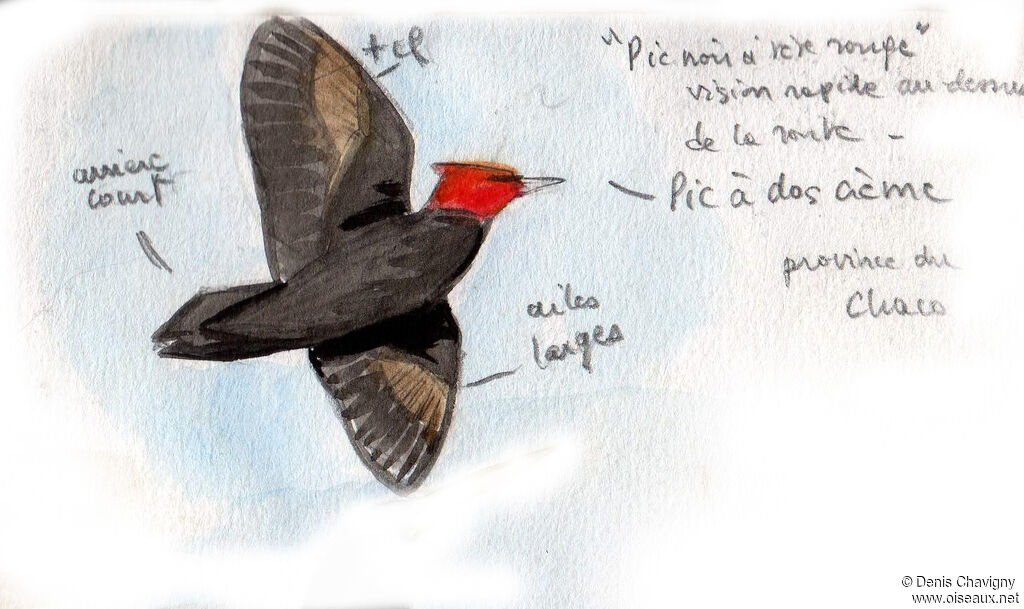 + cl
"Pic noir à tête rouge"
vision rapide au-dessus
de la route -
arrière
court
Pic à dos crème
province du
Chaco
ailes
larges
© Denis Chavigny
www.oiseaux.net